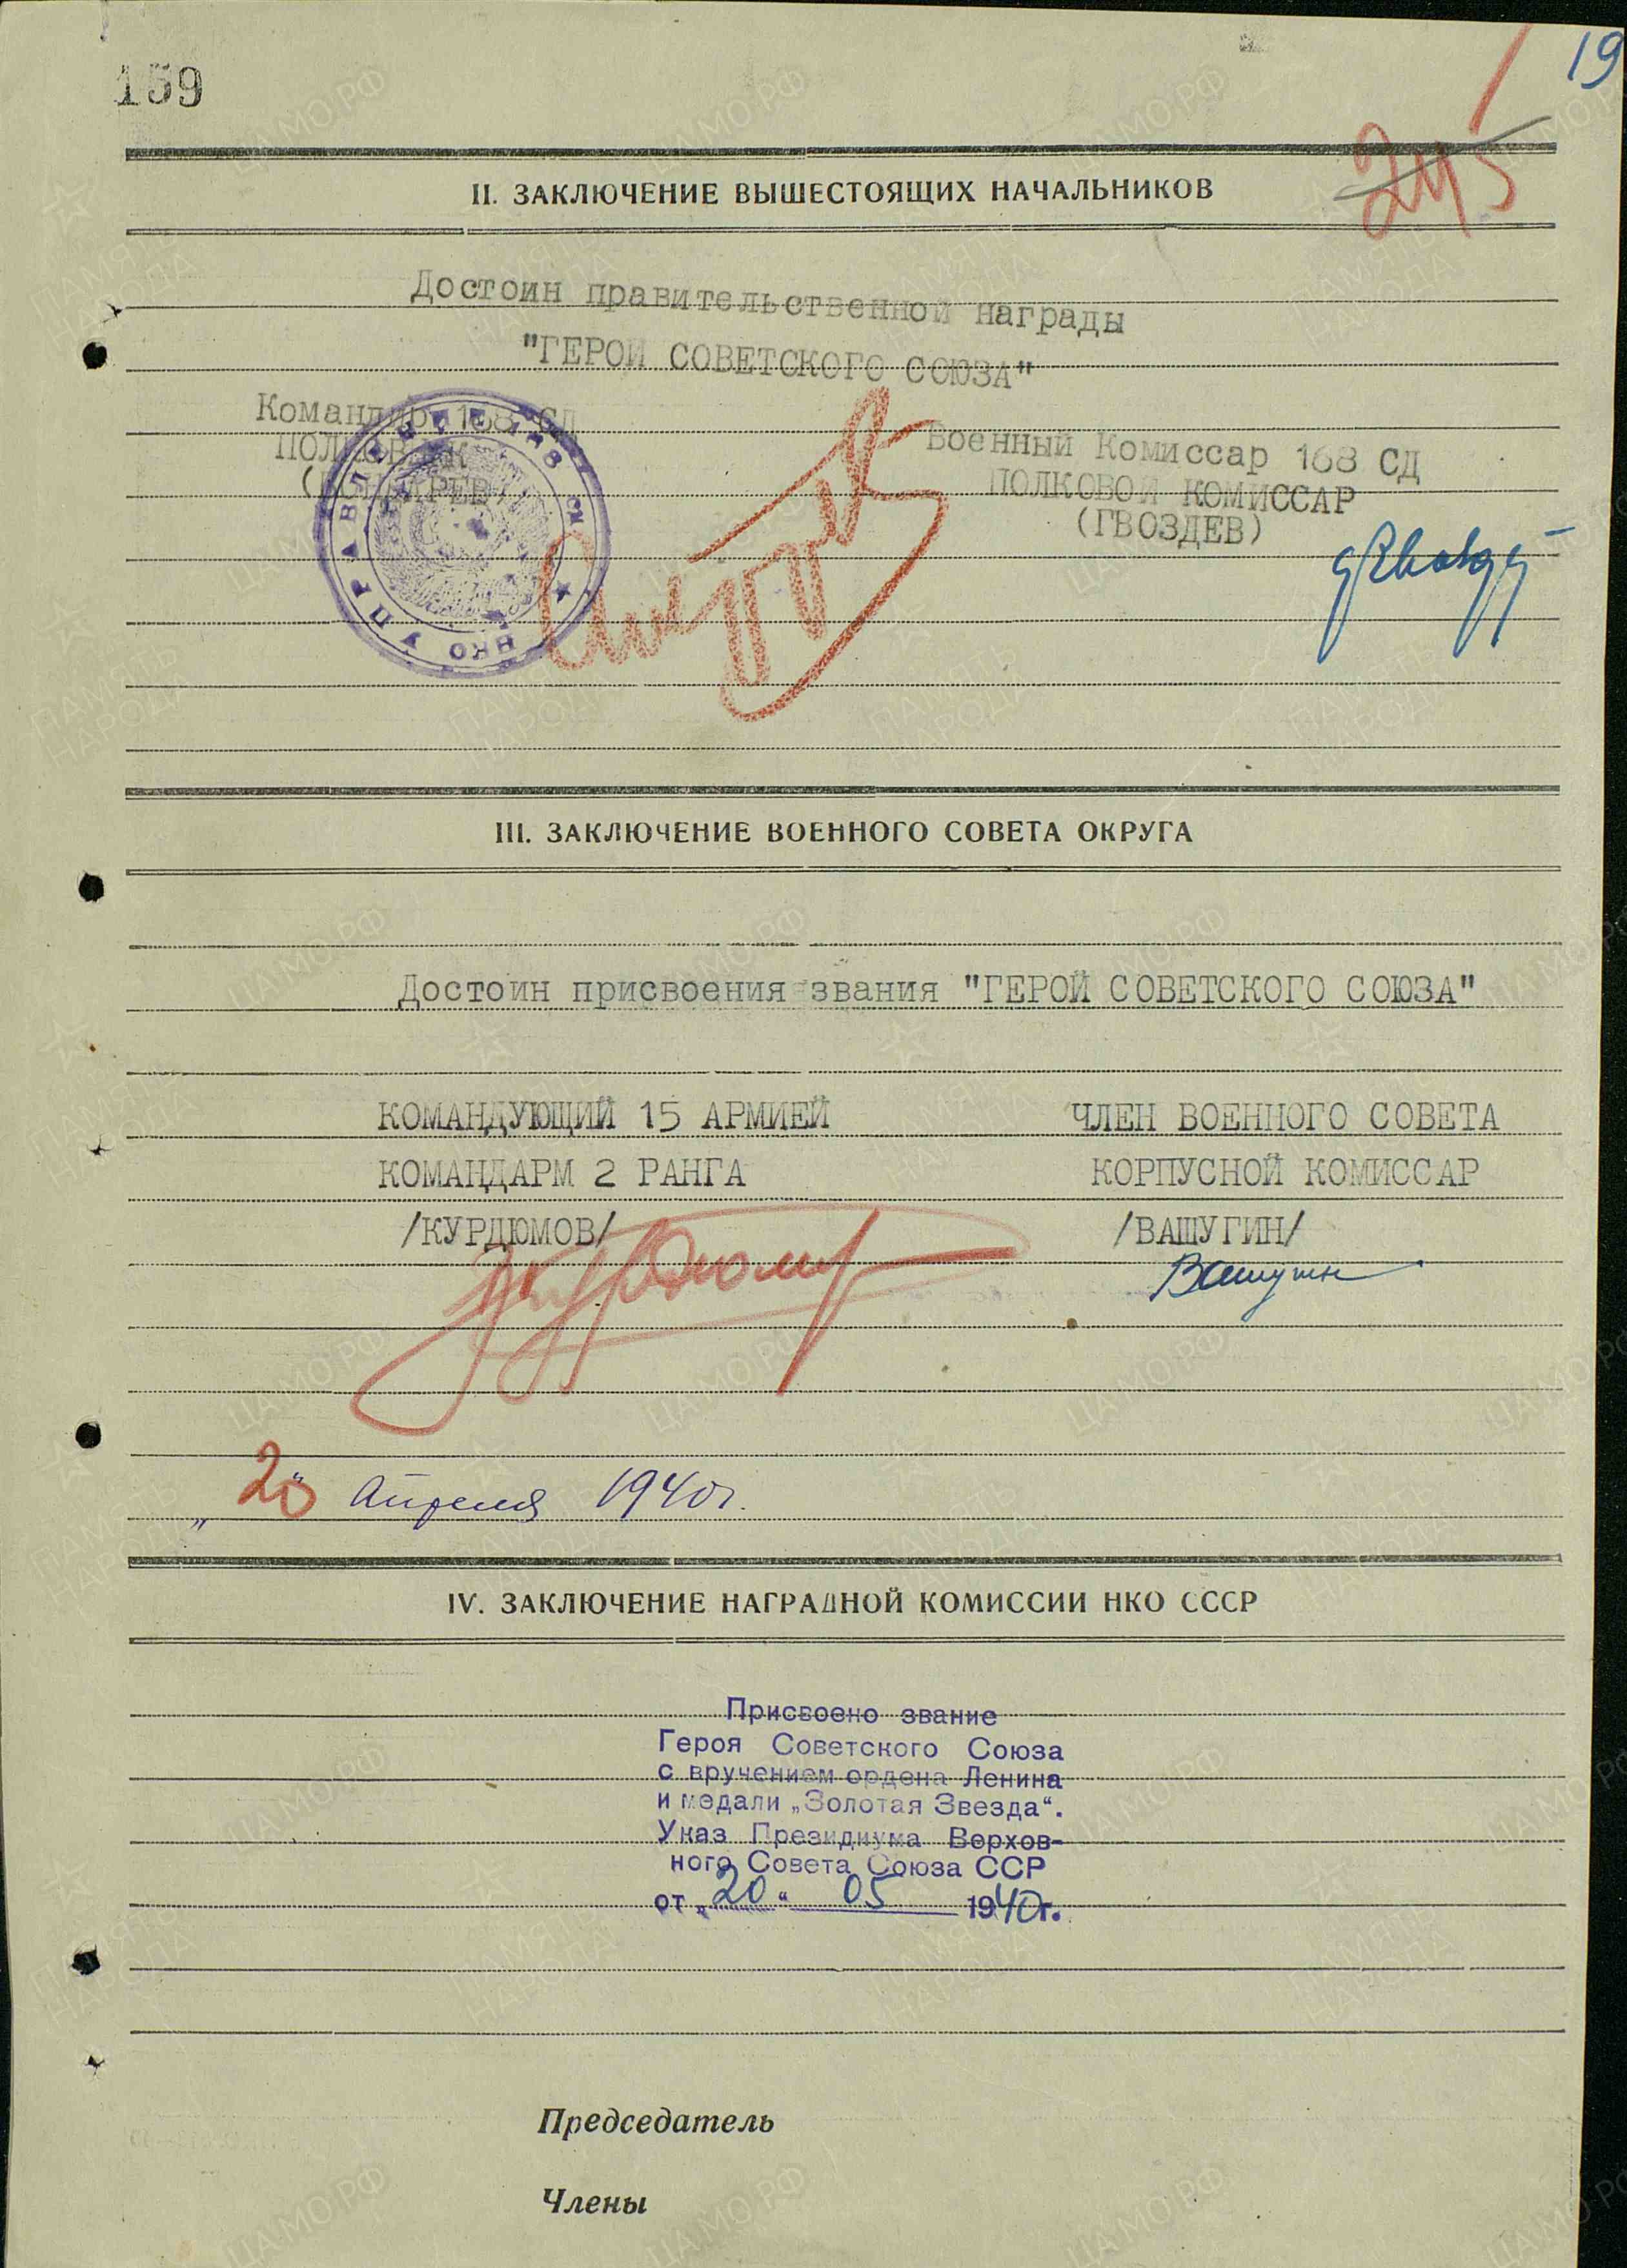 159
19
245
II. ЗАКЛЮЧЕНИЕ ВЫШЕСТОЯЩИХ НАЧАЛЬНИКОВ
Достоин правительственной награды
"ГЕРОЙ СОВЕТСКОГО СОЮЗА"
Командир 168 СД
ПОЛКОВНИК
(БОНДАРЕВ)
Военный Комиссар 168 СД
ПОЛКОВОЙ КОМИССАР
(ГВОЗДЕВ)
НКО УПРАВЛЕНИЕ 168 СД
III. ЗАКЛЮЧЕНИЕ ВОЕННОГО СОВЕТА ОКРУГА
Достоин присвоения звания "ГЕРОЙ СОВЕТСКОГО СОЮЗА"
КОМАНДУЮЩИЙ 15 АРМИЕЙ ЧЛЕН ВОЕННОГО СОВЕТА
КОМАНДАРМ 2 РАНГА КОРПУСНОЙ КОМИССАР
/КУРДЮМОВ/ /ВАШУГИН/
Курдюмов Вашугин
„20" Апреля 1940г.
IV. ЗАКЛЮЧЕНИЕ НАГРАДНОЙ КОМИССИИ НКО СССР
Присвоено звание
Героя Советского Союза
с вручением ордена Ленина
и медали „Золотая Звезда“.
Указ Президиума Верхов-
ного Совета Союза ССР
от „20“ 05 1940г.
Председатель
Члены